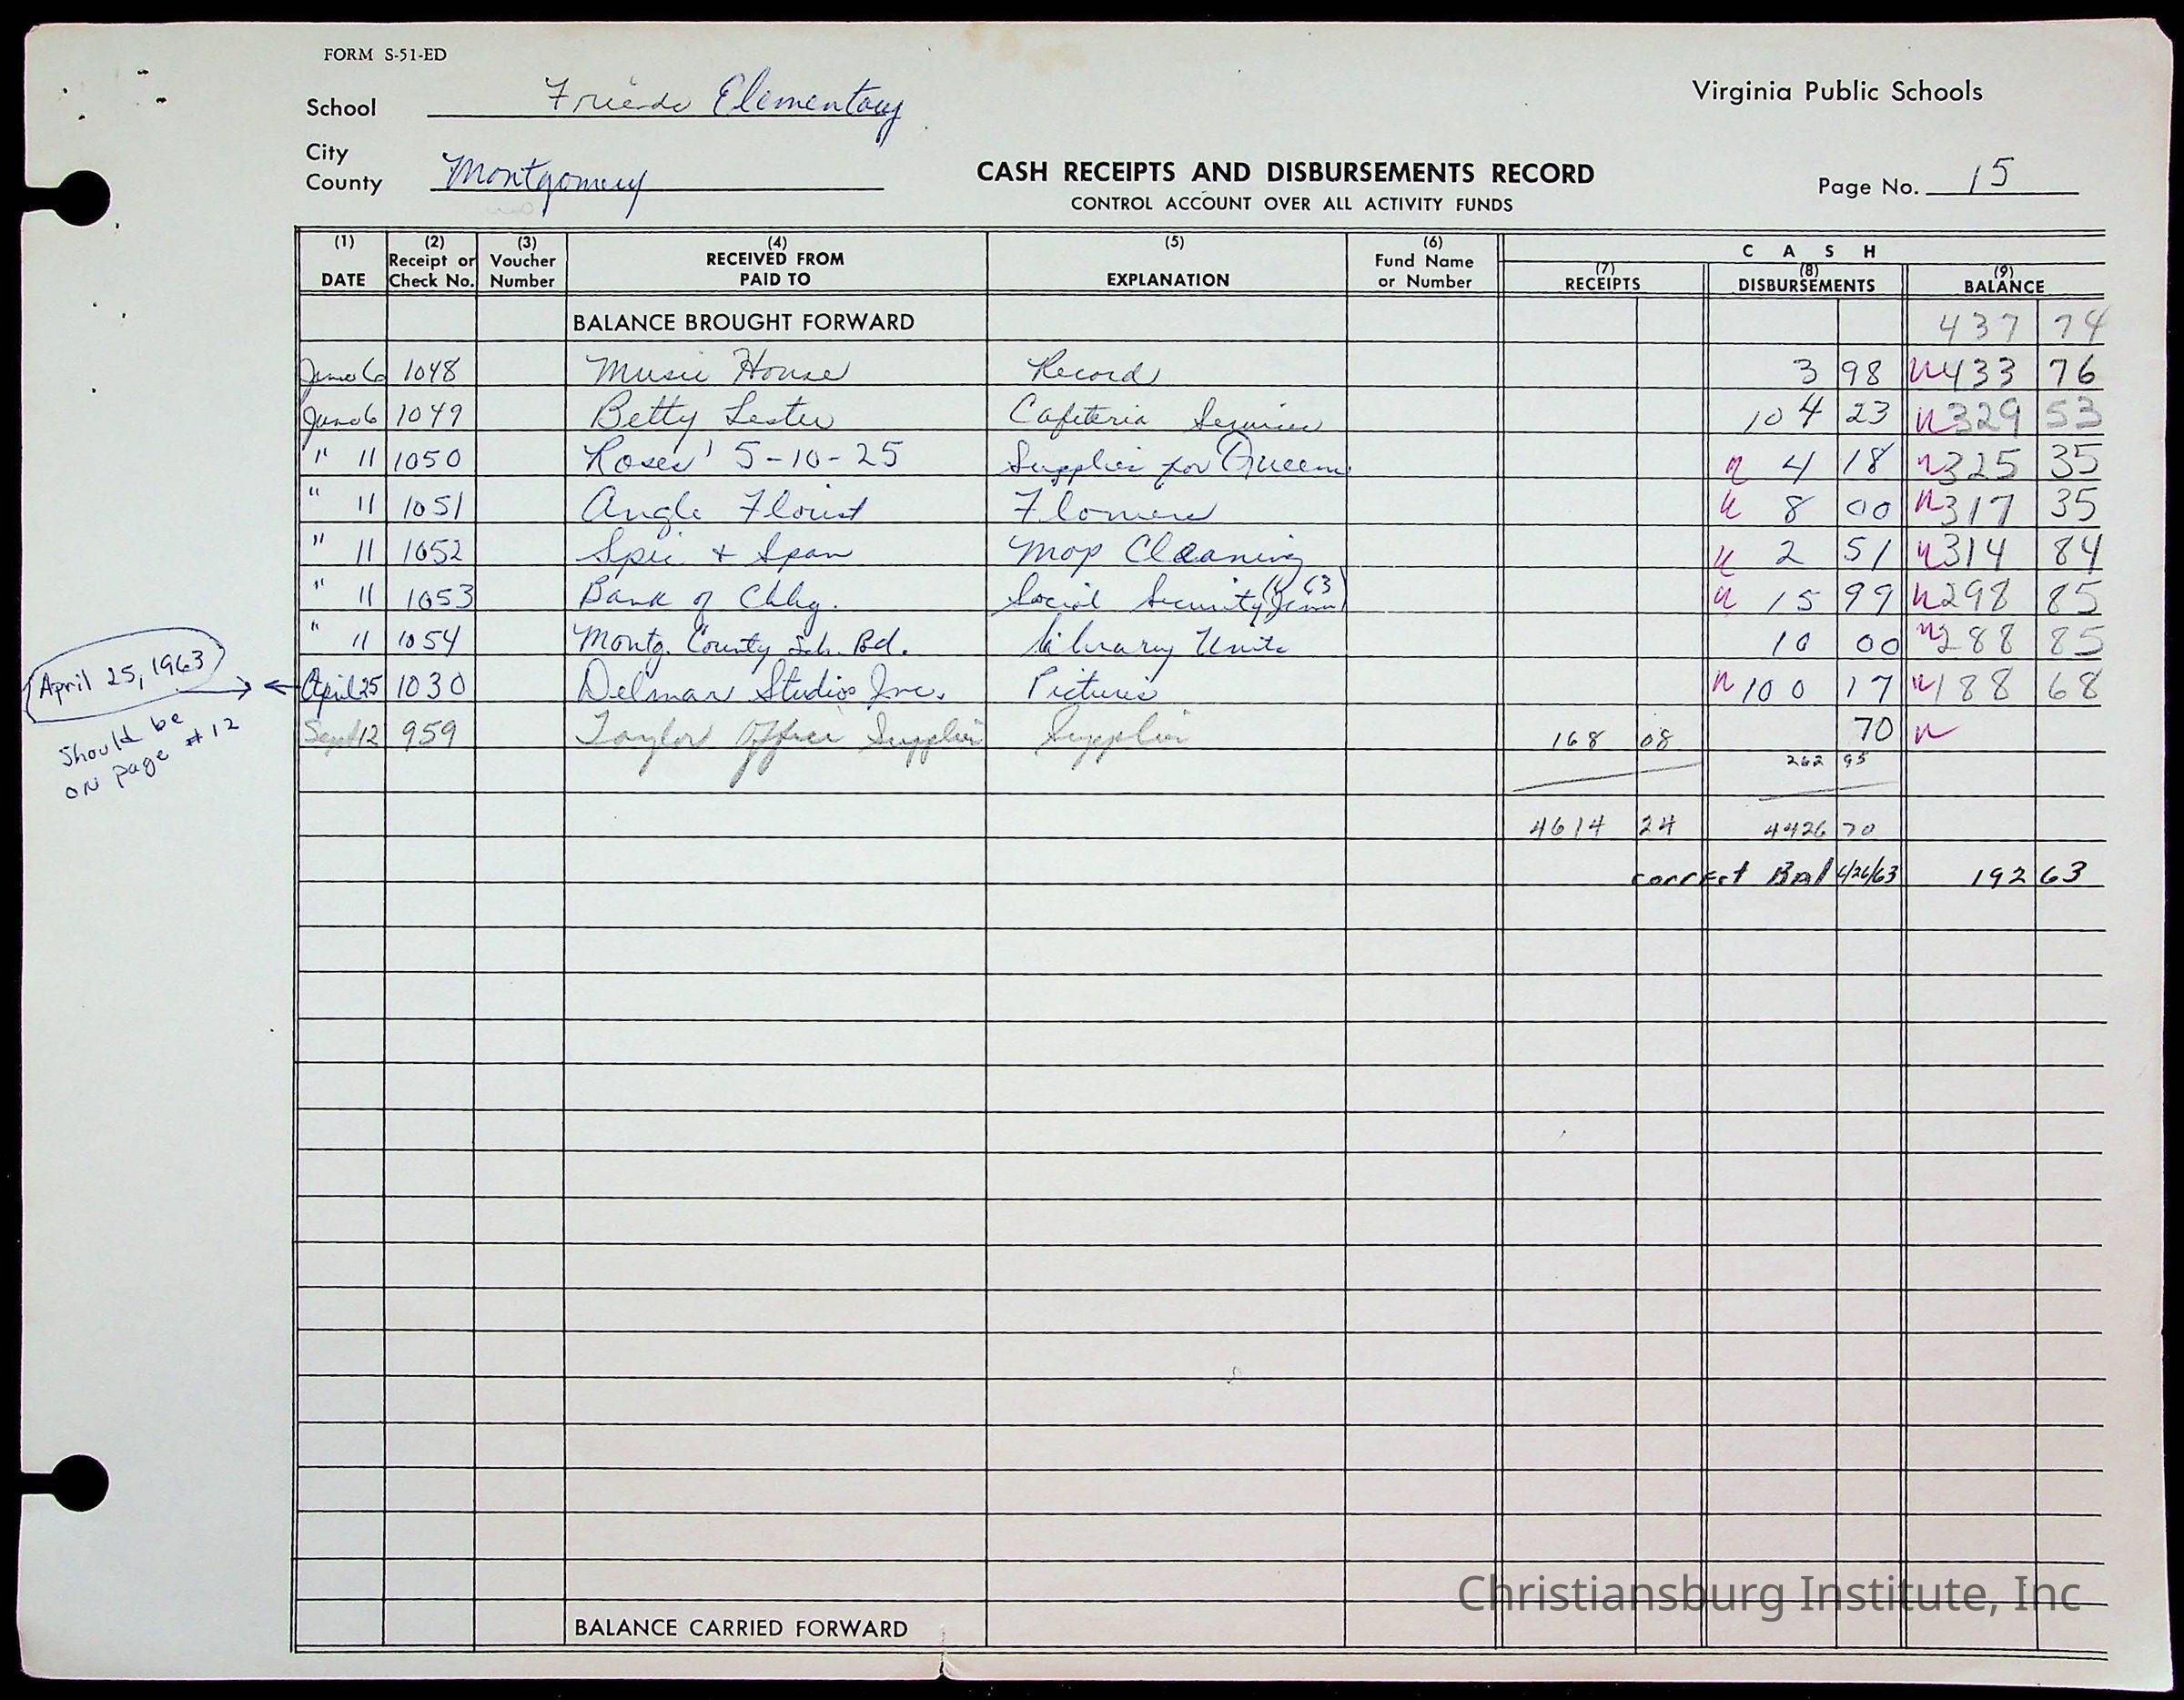 FORM S-51-ED
School Friends Elementary
Virginia Public Schools
City
County Montgomery
CASH RECEIPTS AND DISBURSEMENTS RECORD
Page No. 15
CONTROL ACCOUNT OVER ALL ACTIVITY FUNDS
(1) DATE (2) Receipt or Check No. (3) Voucher Number (4) RECEIVED FROM PAID TO (5) EXPLANATION (6) Fund Name or Number CASH (7) RECEIPTS (8) DISBURSEMENTS (9) BALANCE
BALANCE BROUGHT FORWARD 437 74
June 6 1048 Music House Record 3 98 433 76
June 6 1049 Betty Lester Cafeteria Services 104 23 329 53
" 11 1050 Roses' 5-10-25 Supplies for Queen 4 18 325 35
" 11 1051 Angle Florist Flowers 8 00 317 35
" 11 1052 Spic + Span Mop Cleaning 2 51 314 84
" 11 1053 Bank of Chbg. Social Security (June 63) 15 99 298 85
" 11 1054 Montg. County Sch. Bd. Library Units 10 00 288 85
April 25, 1963
April 25 1030 Delmar Studios Inc. Pictures 100 17 188 68
Should be
on page #12
Sept 12 959 Taylor Office Supplies Supplies 168 08 70
262 95
4614 24 4426 70
Correct Bal 6/26/63 192 63
BALANCE CARRIED FORWARD
Christiansburg Institute, Inc